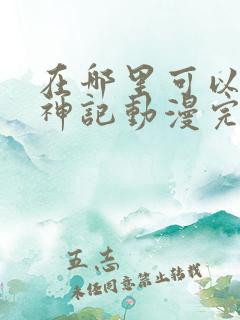 在哪里可以
神記動漫完
五志
未经同意禁止转载